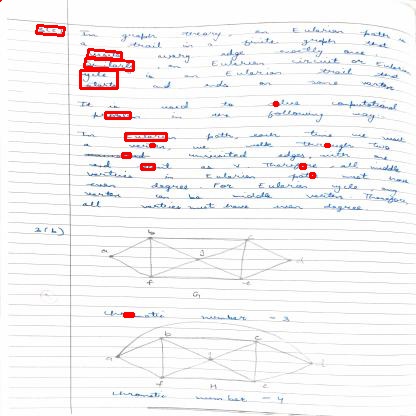 In graph theory, an Eulerian path is
a trail in a finite graph that
every edge exactly once.
an Eulerian circuit or Eulerian
cycle is an Eulerian trail that
starts and ends on same vertex
It is used to computational
in the following way.
In path, each time we visit
a vertex, we walk through two
unvisited edges, with one
end as v Therefore, all middle
vertices in Eulerian path must have
even degree. For Eulerian cycle, any
vertex can be middle vertex. Therefore,
all vertices must have even degree.
2(b)
b c
a g d
f e
G
chromatic number = 3
b c
a d
f H e
chromatic number = 4